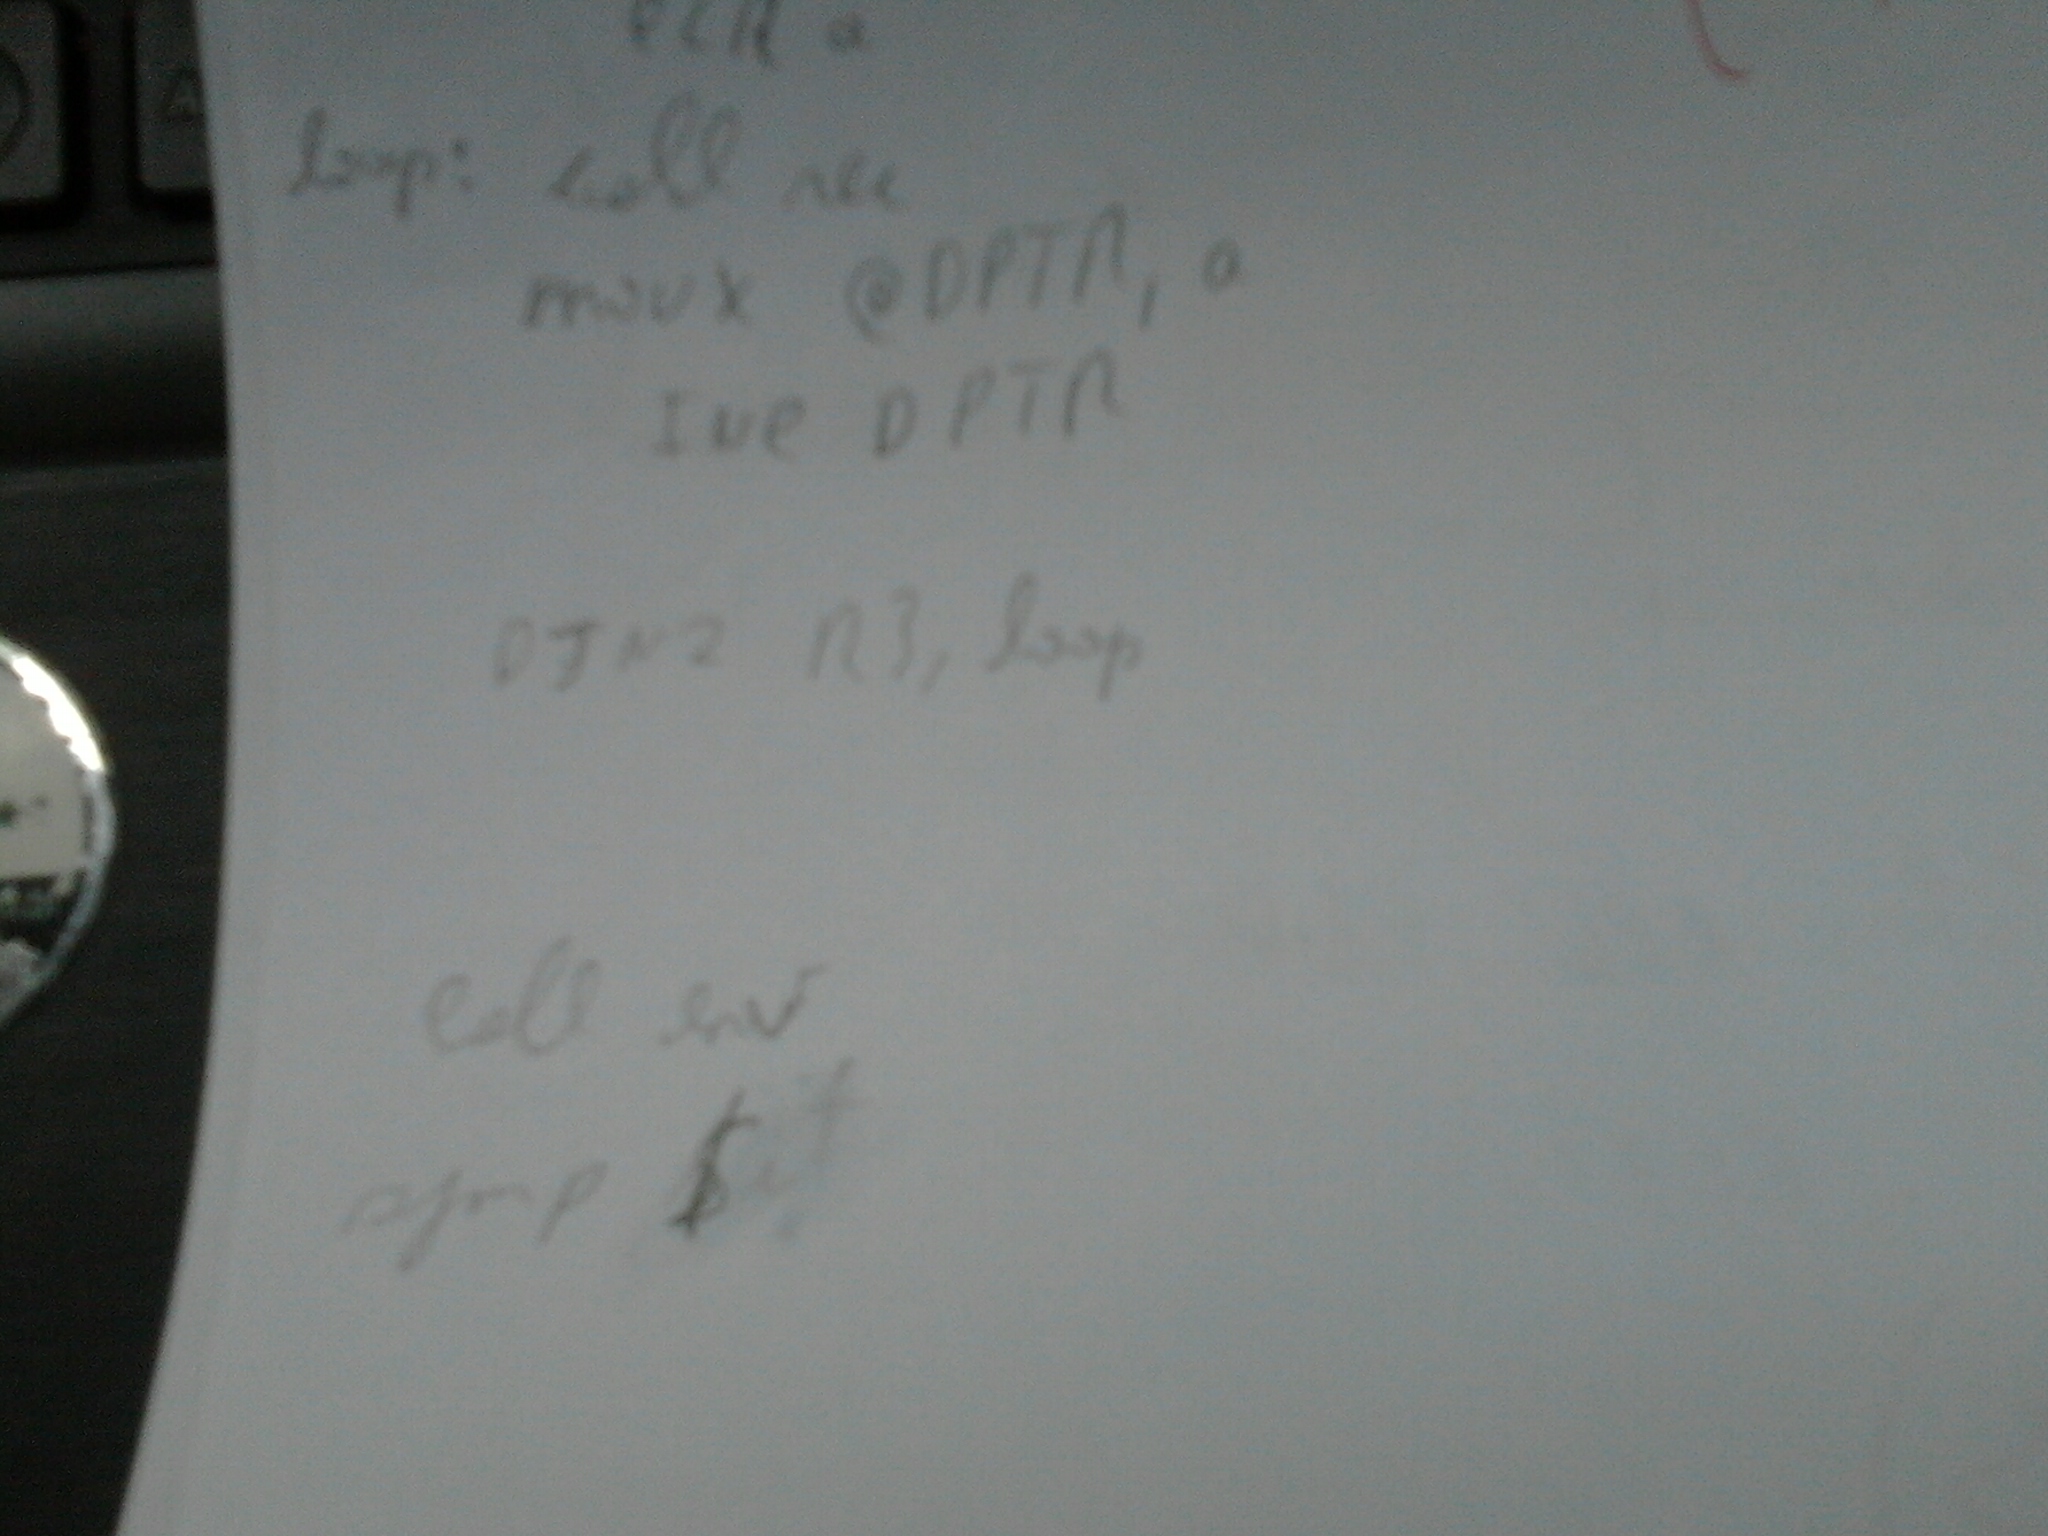 CLR a
loop: call rec
movx @DPTR, a
INC DPTR
DJNZ R3, loop
call env
sjmp $